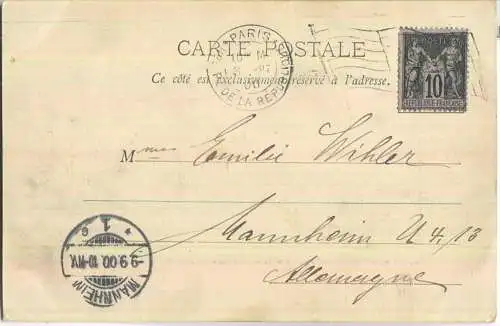 PARIS
DE LA REP
CARTE POSTALE
Ce côté est exclusivement réservé à l'adresse.
10
REPUBLIQUE FRANÇAISE
Mmes Emilie Wihler
Mannheim U 4, 13
Allemagne
1
MANNHEIM
9.9.00.10-11V.